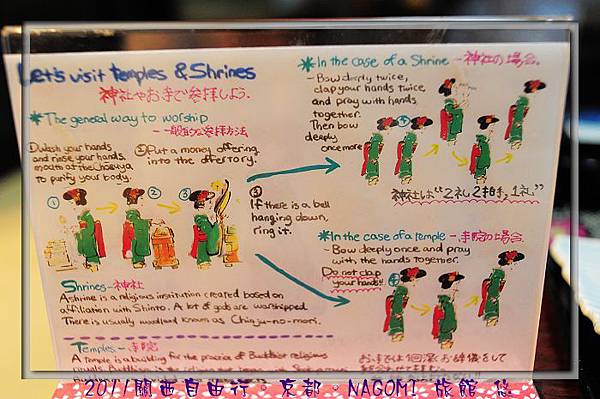 Let's visit temples & Shrines
神社やお寺で参拝しよう。
*The general way to worship
- 一般的な参拝方法
①Wash your hands
and rinse your hands,
mouth at the
to purify your body.
②Put a money offering
into the offertory.
① ② ③
③
If there is a bell
hanging down,
ring it.
Shrines - 神社
A shrine is a religious institution created based on
affiliation with Shinto. A lot of gods are worshipped.
There is usually woodland known as Chinju-no-mori.
Temples - 寺院
A temple is a building for the practice of Buddhist religious
*In the case of a Shrine - 神社の場合.
- Bow deeply twice,
clap your hands twice
and pray with hands
together.
Then bow
deeply
once more
④
神社は"2礼2拍手1礼"
*In the case of a temple - 寺院の場合.
- Bow deeply once and pray
with the hands together.
Do not clap
your hands!!
④
お寺では1回深くお辞儀をして
2011關西自由行。京都。NAGOMI 旅館 悠